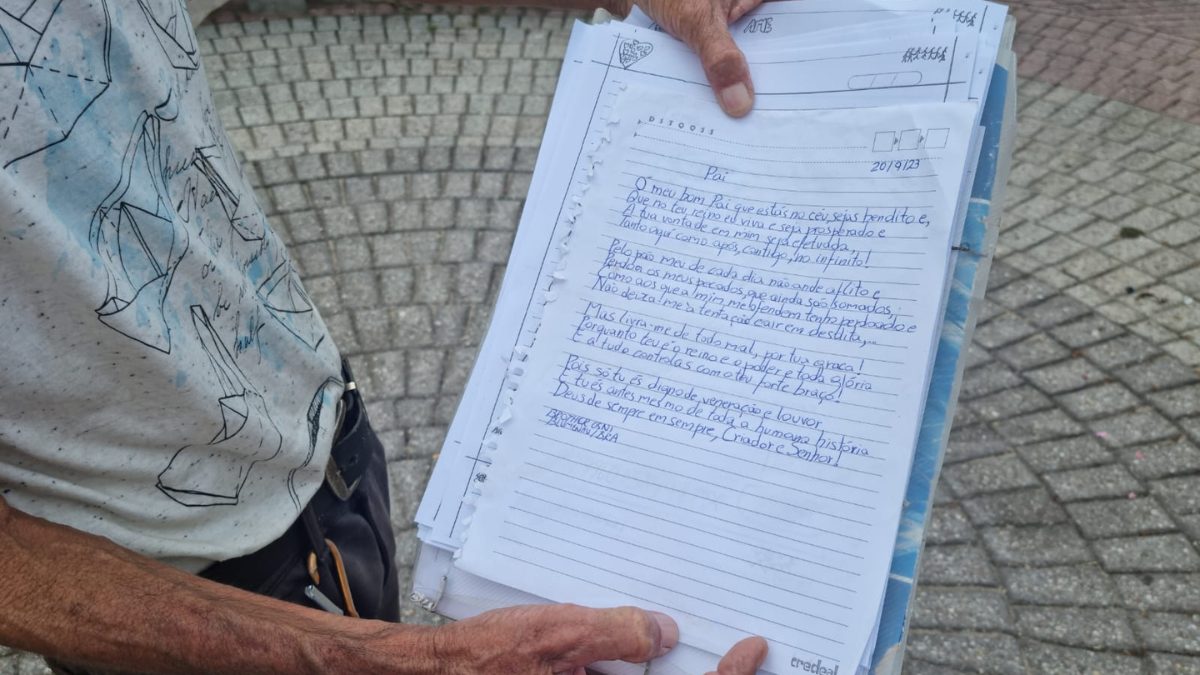 D S T Q Q S S
20/9/23
Pai
Ó meu bom Pai que estás no céu, sejas bendito e,
Que no teu reino eu viva e seja prosperado e
A tua vontade em mim seja efetuada,
Tanto aqui como após, contigo, no infinito!
Pelo pão meu de cada dia não ande aflito e
Perdoa os meus pecados, que ainda são somados,
Como aos que a mim, me ofendem tenho perdoado e
Não deixa-me à tentação cair em desdita,...
Mas livra-me de todo mal, por tua graça!
Porquanto teu é o reino e o poder e toda a glória
E a tudo controlas com o teu forte braço!
Pois só tu és digno de veneração e louvor
E tu és antes mesmo de toda a humana história
Deus de sempre em sempre, Criador e Senhor!
OSNI
BLUMENAU/BRA
credeal